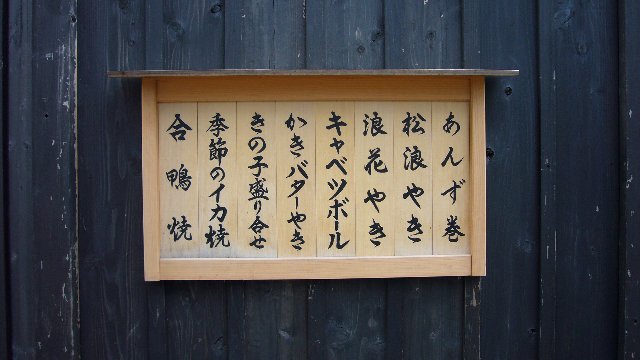 あんず巻
松浪やき
浪花やき
キャベツボール
かきバターやき
きの子盛り合せ
季節のイカ焼
合鴨焼